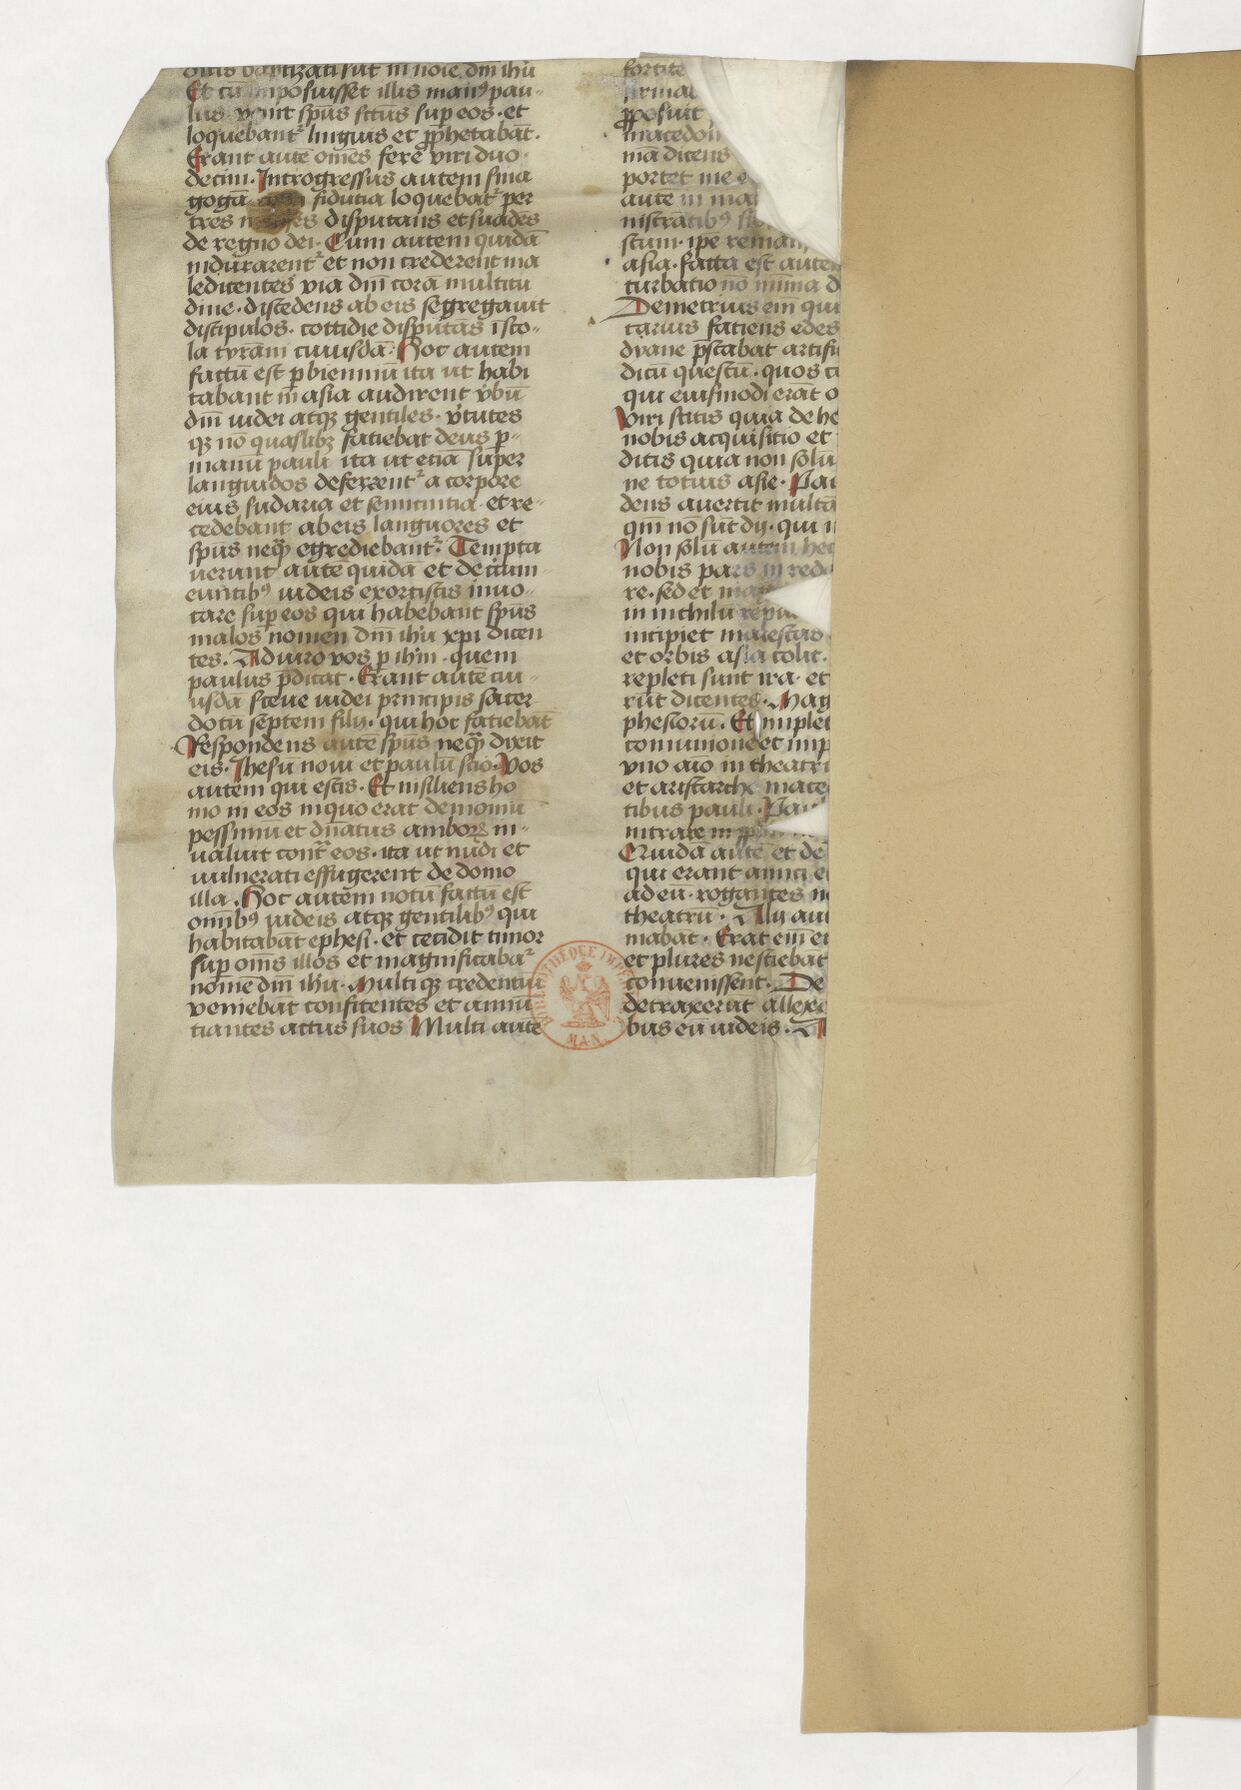 Et cū imposuisset illis man⁹ pau-
lus venit sp̄us sc̄tus sup eos · et
loquebant᷑ linguis et ꝓphetabāt ·
Erant autē om̄es fere viri duo
decim · Introgressus autem sina
gogā cum fidutia loquebat᷑ per
tres menses disputans et suadēs
de regno dei · Cum autem quidā
indurarent᷑ et non crederent ma
ledicentes via dn̄i corā multitu
dine · discedens ab eis segregavit
discipulos · cottidie disputās ī sco-
la tyrāni cuiusdā · Hoc autem
factū est ꝑ bienniū ita ut habi
tabant in asia audirent v̾bū
dn̄i iudei atqꝫ gentiles · v̾tutes
qꝫ nō quaslibꝫ fatiebat deus ꝑ-
manū pauli ita ut etiā super
languidos deferrent᷑ a corpore
eius sudaria et semicintia et re-
cedebant ab eis languores et
sp̄us neqꝫ egrediebant᷑ · Tempta
verunt autē quidā et de circum-
euntib⁹ iudeis exortistis invo-
care sup eos qui habebant sp̄us
malos nomen dn̄i ih̄u xp̄i dicen
tes · Adiuro vos ꝑ ih̄m · quem
paulus p̄dicat · Erant autē cui-
usdā sceve iudei principis sacer
dotū septem filii · qui hoc fatiebāt
Respondens autē sp̄us neqꝫ dixit
eis · Ihesū novi et paulū scio · Vos
autem qui estis · Et insiliens ho
mo in eos in quo erat demoniū
pessimū et dn̄atus amborꝝ in-
valuit cont᷑ eos · ita ut nudi et
vulnerati effugerent de domo
illa · Hoc autem notū factū est
om̄ib⁹ iudeis atqꝫ gentilib⁹ qui
habitabāt ephesi · et cecidit timor
sup om̄s illos et magnificaba᷑
nomē dn̄i ih̄u · Multi qꝫ credentiū
veniebāt confitentes et annū
tiantes actus suos Multi autē
fortite
firmat
ꝓposuit
macedon
mā dicens
portet me
autē in ma
nistrātib⁹
scum · ip̄e reman
asia · facta est autem
turbatio nō mīma d
Demetrius em̄ qui
tarius fatiens edes
dyane p̄stabat artifi
dicū quaestū · quos
qui eiusmodi erāt o
Viri scitis quia de he
nobis acquisitio et
ditis quia non solū
ne totius asie · Pau
dens avertit multā
qm̄ nō sūt dij · qui
Non solū autem hec
nobis pars in reda
re · sed et
in nichilū repu
incipiet maiestas
et orbis asia colit ·
repleti sunt ira · et
rūt dicentes · Mag
phesiorū · Et implet
comunione et imp
uno aīo in theatrū
et aristarcho mace
tibus pauli · Pau
intrare in
Quidā autē et de
qui erant amici
ad eū · rogantes
theatrū · Alij au
mabāt · Erat em̄
et plures nesciebāt
convenissent · De
detraxerūt allexa
bus eū iudeis · A
BIBLIOTHEQUE IMPERIALE
MAN.